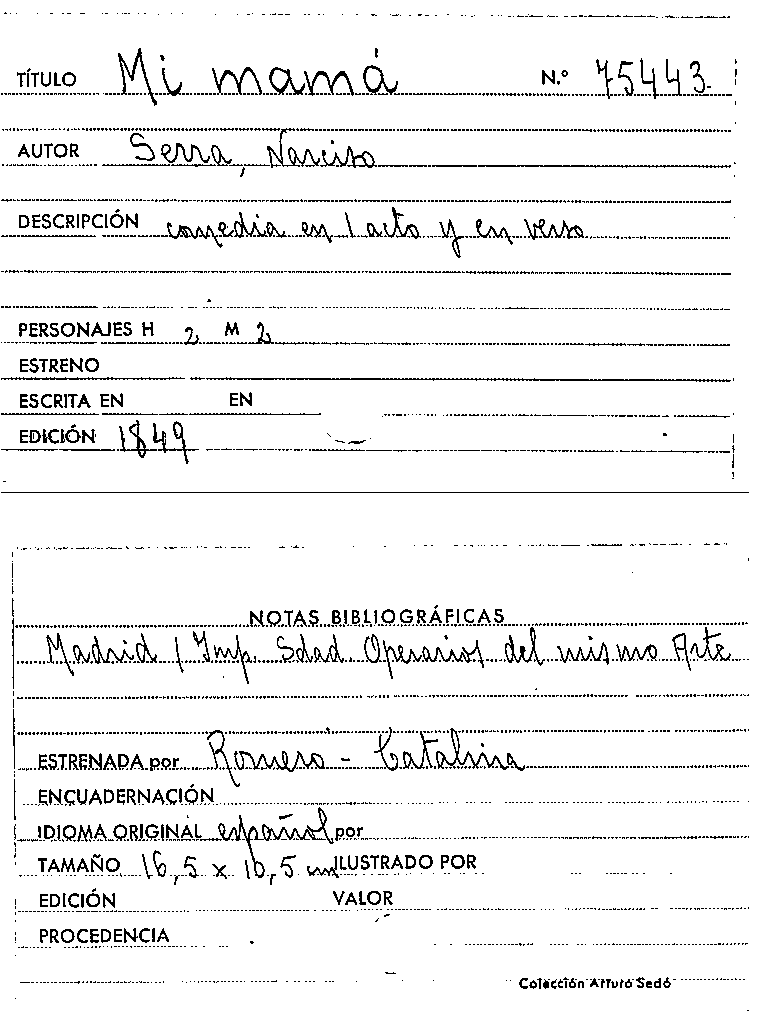 TÍTULO Mi mamá N.º 75443.
AUTOR Serra, Narciso
DESCRIPCIÓN comedia en 1 acto y en verso
PERSONAJES H 2 M 2
ESTRENO
ESCRITA EN EN
EDICIÓN 1849
NOTAS BIBLIOGRÁFICAS
Madrid / Imp. Sdad Operarios del mismo Arte
ESTRENADA por Romero - Catalina
ENCUADERNACIÓN
IDIOMA ORIGINAL español por
TAMAÑO 16,5 x 10,5 cm ILUSTRADO POR
EDICIÓN VALOR
PROCEDENCIA
Colección Arturo Sedó